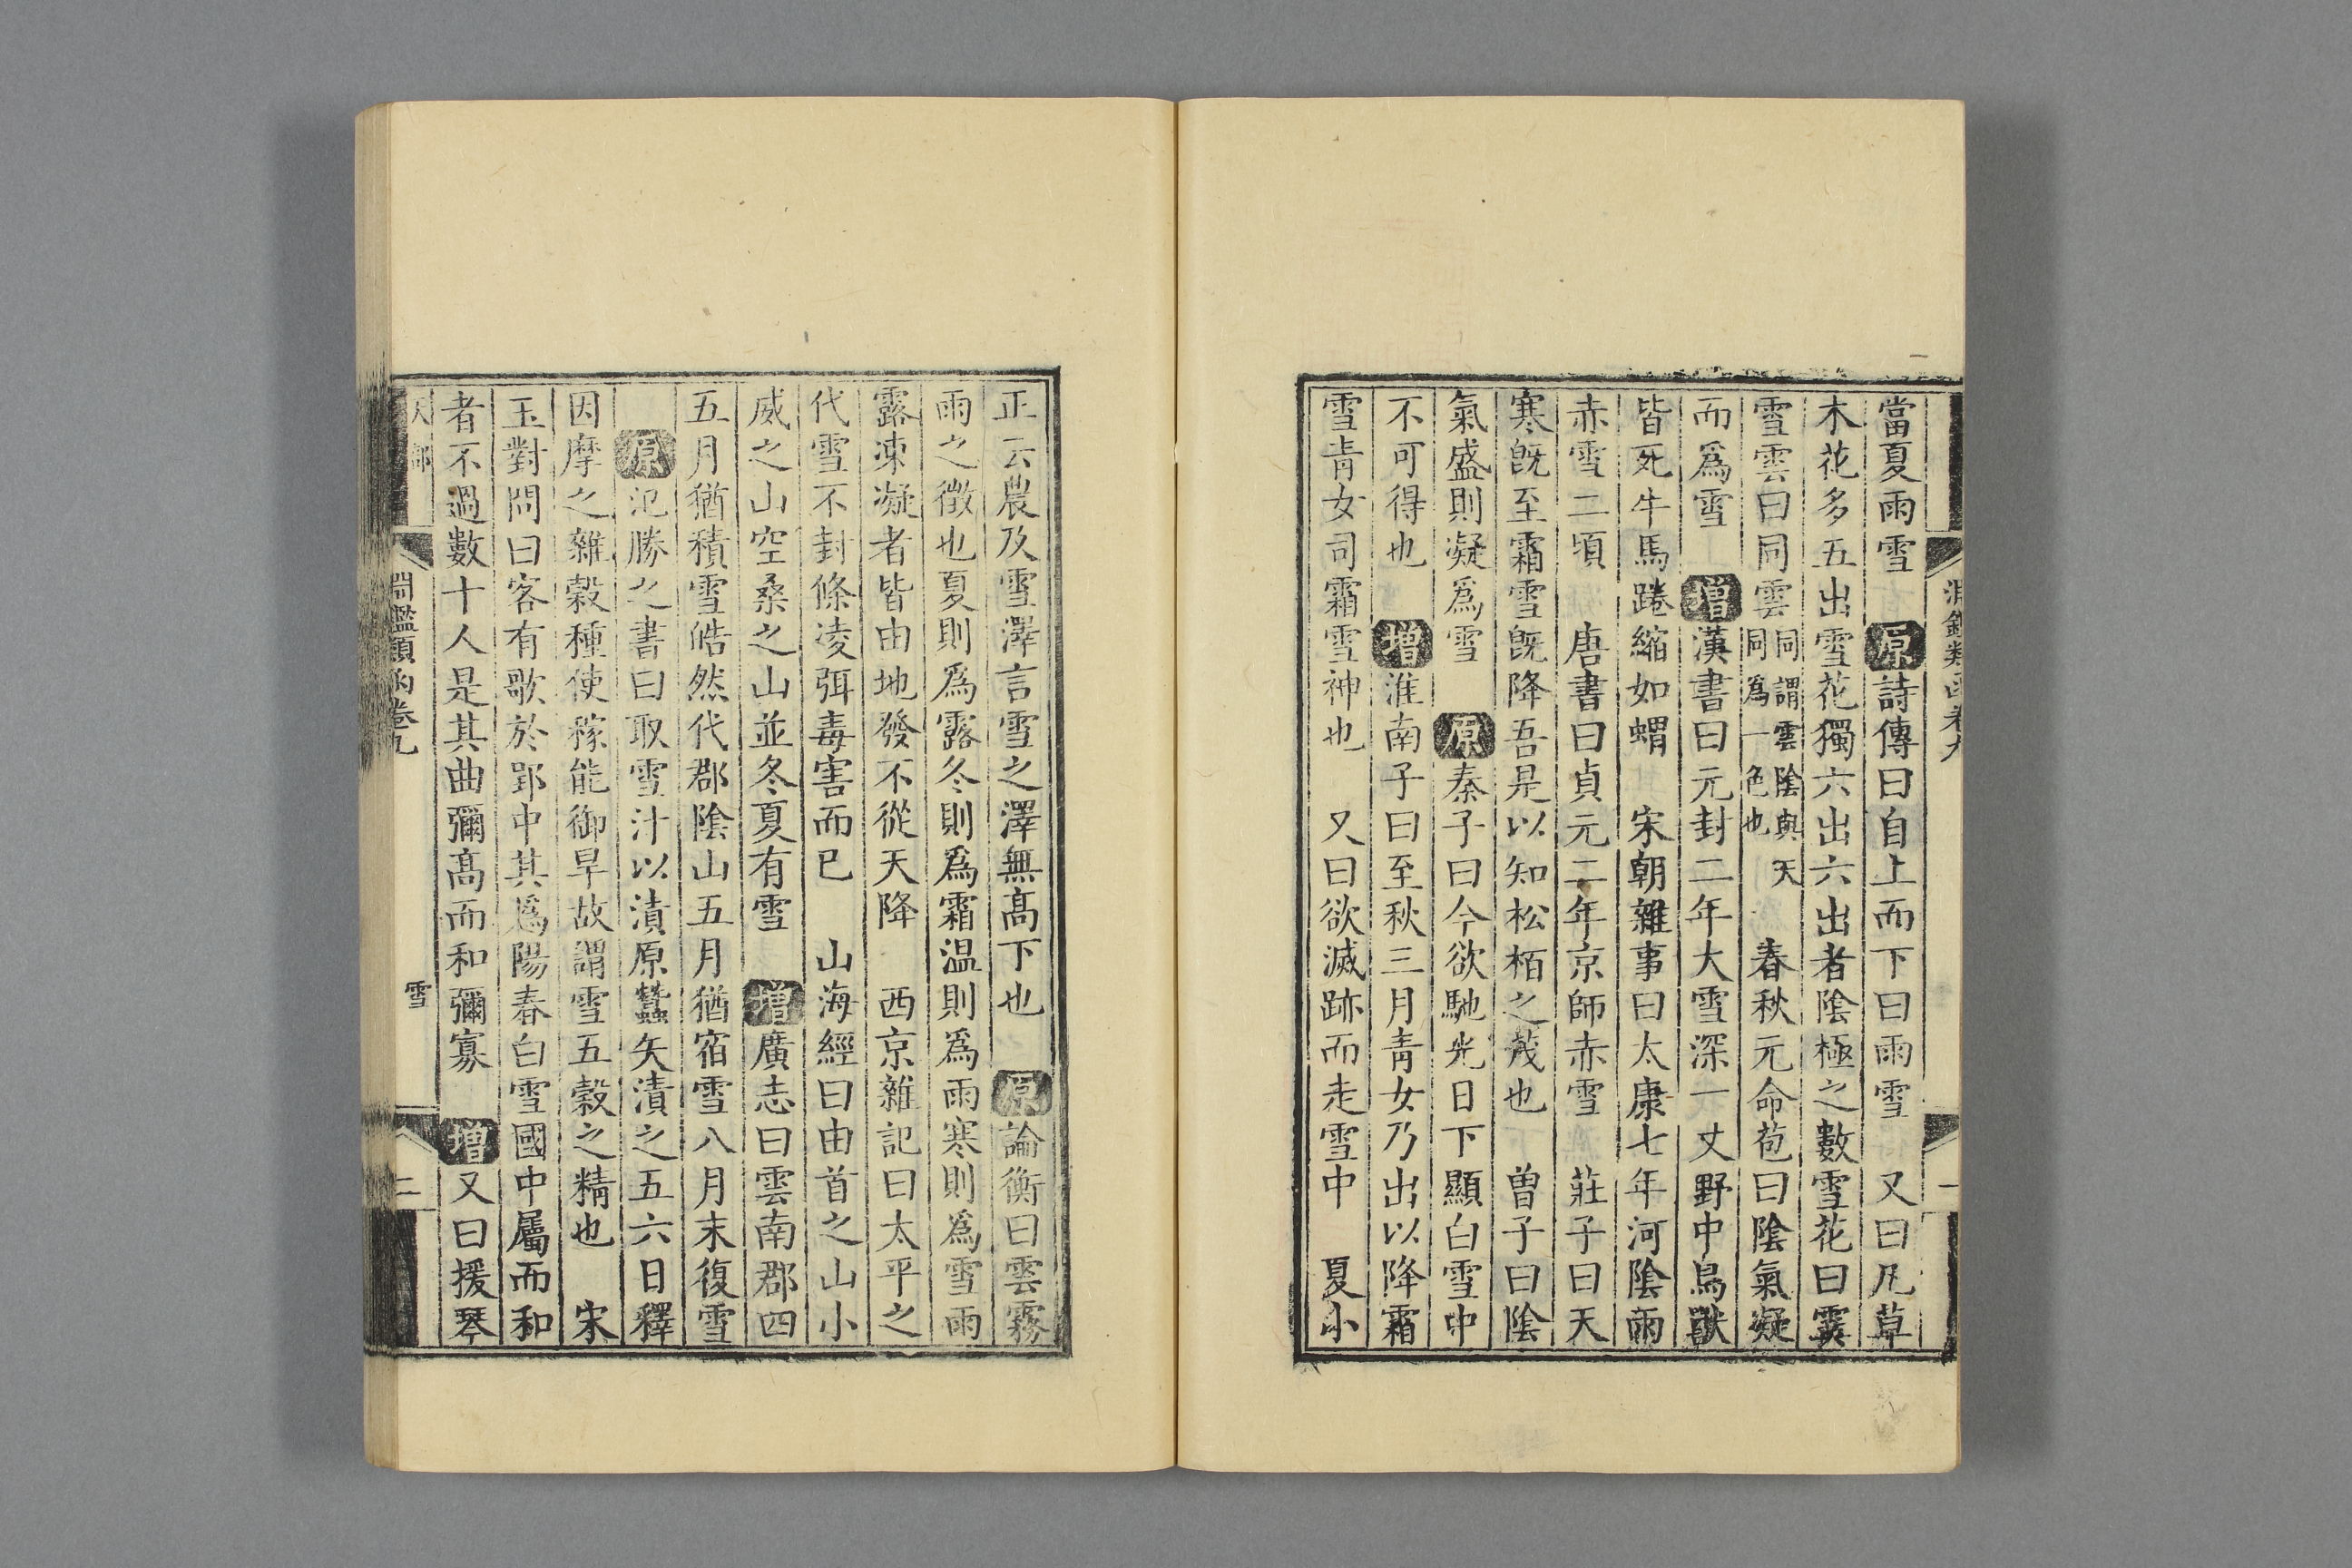 淵鑑類函卷九
一
當夏雨雪　原詩傳曰自上而下曰雨雪　又曰凡草
木花多五出雪花獨六出六出者陰極之數雪花曰霙
雪雲曰同雲同謂雲陰與天同爲一色也　春秋元命苞曰陰氣凝
而爲雪　增漢書曰元封二年大雪深一丈野中鳥獸
皆死牛馬踡縮如蝟　宋朝雜事曰太康七年河陰雨
赤雪二頃　唐書曰貞元二年京師赤雪　莊子曰天
寒旣至霜雪旣降吾是以知松栢之茂也　曾子曰陰
氣盛則凝爲雪　原秦子曰今欲馳光日下顯白雪中
不可得也　增淮南子曰至秋三月青女乃出以降霜
雪青女司霜雪神也　又曰欲滅跡而走雪中　夏小
正云農及雪澤言雪之澤無髙下也　原論衡曰雲霧
雨之徵也夏則爲露冬則爲霜温則爲雨寒則爲雪雨
露凍凝者皆由地發不從天降　西京雜記曰太平之
代雪不封條凌弭毒害而已　山海經曰由首之山小
威之山空桑之山並冬夏有雪　增廣志曰雲南郡四
五月猶積雪皓然代郡陰山五月猶宿雪八月末復雪
原氾勝之書曰取雪汁以漬原蠶矢漬之五六日釋
因摩之雜穀種使稼能御旱故謂雪五穀之精也　宋
玉對問曰客有歌於郢中其爲陽春白雪國中屬而和
者不過數十人是其曲彌髙而和彌寡　增又曰援琴
天部
淵鑑類函卷九
雪
二